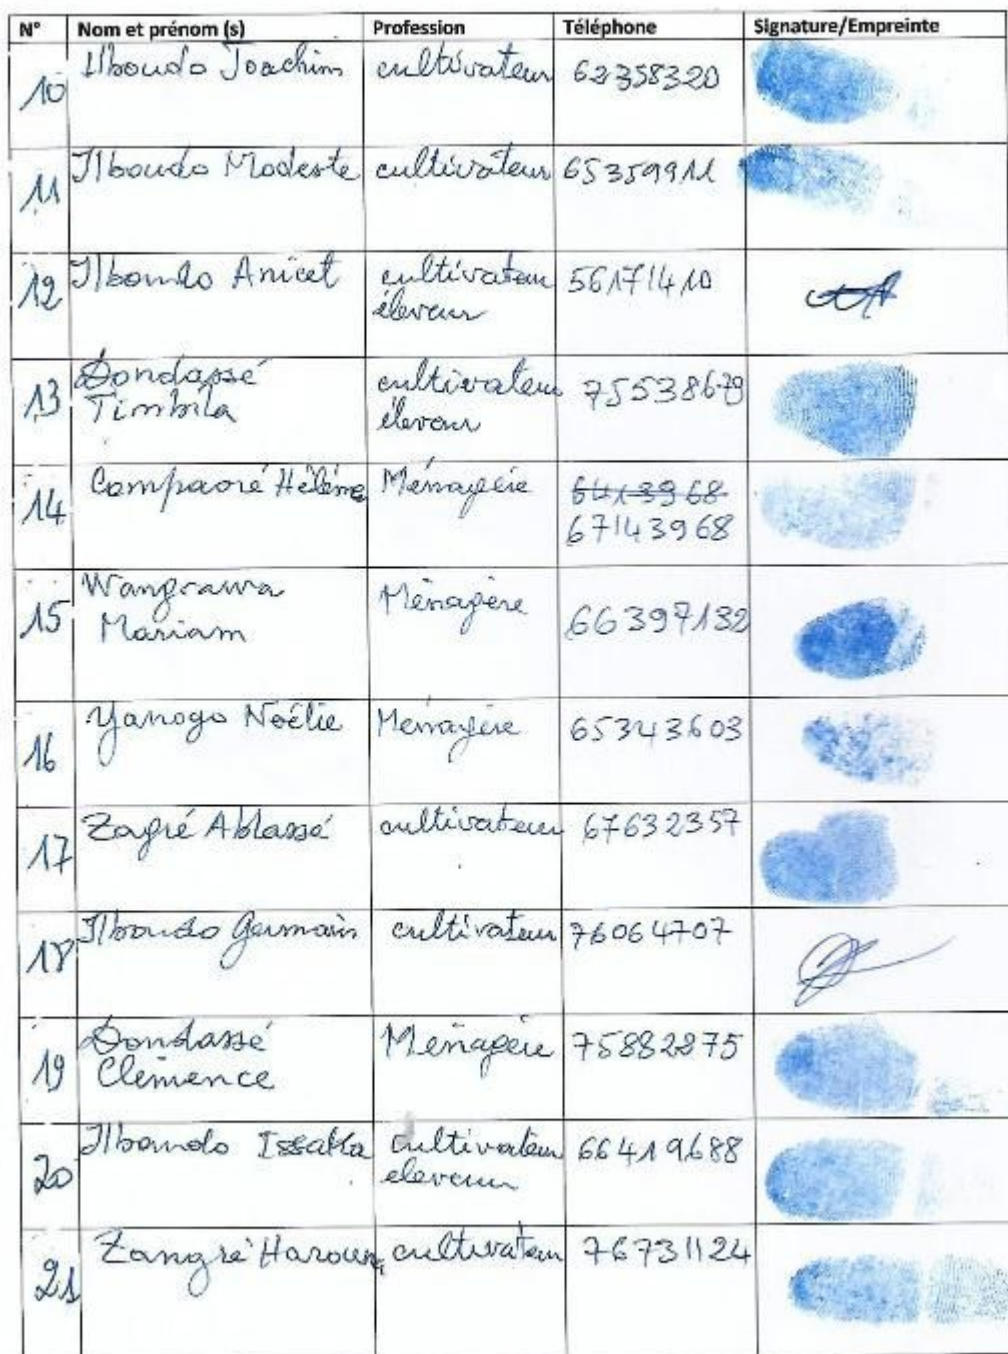 N° Nom et prénom (s) Profession Téléphone Signature/Empreinte
10 Ilboudo Joachim cultivateur 62358320
11 Ilboudo Modeste cultivateur 65359911
12 Ilboudo Anicet cultivateur 56171410
éleveur
13 Dondassé cultivateur 75538679
Timbila éleveur
14 Compaoré Hélène Ménagère 6413968
67143968
15 Wangrawa Ménagère 66397132
Mariam
16 Yanogo Noélie Ménagère 65343603
17 Zagré Ablassé cultivateur 67632357
18 Ilboudo Germain cultivateur 76064707
19 Dondassé Ménagère 75882875
Clémence
20 Ilboudo Issaka cultivateur 66419688
eleveur
21 Zangré Harouna cultivateur 76731124